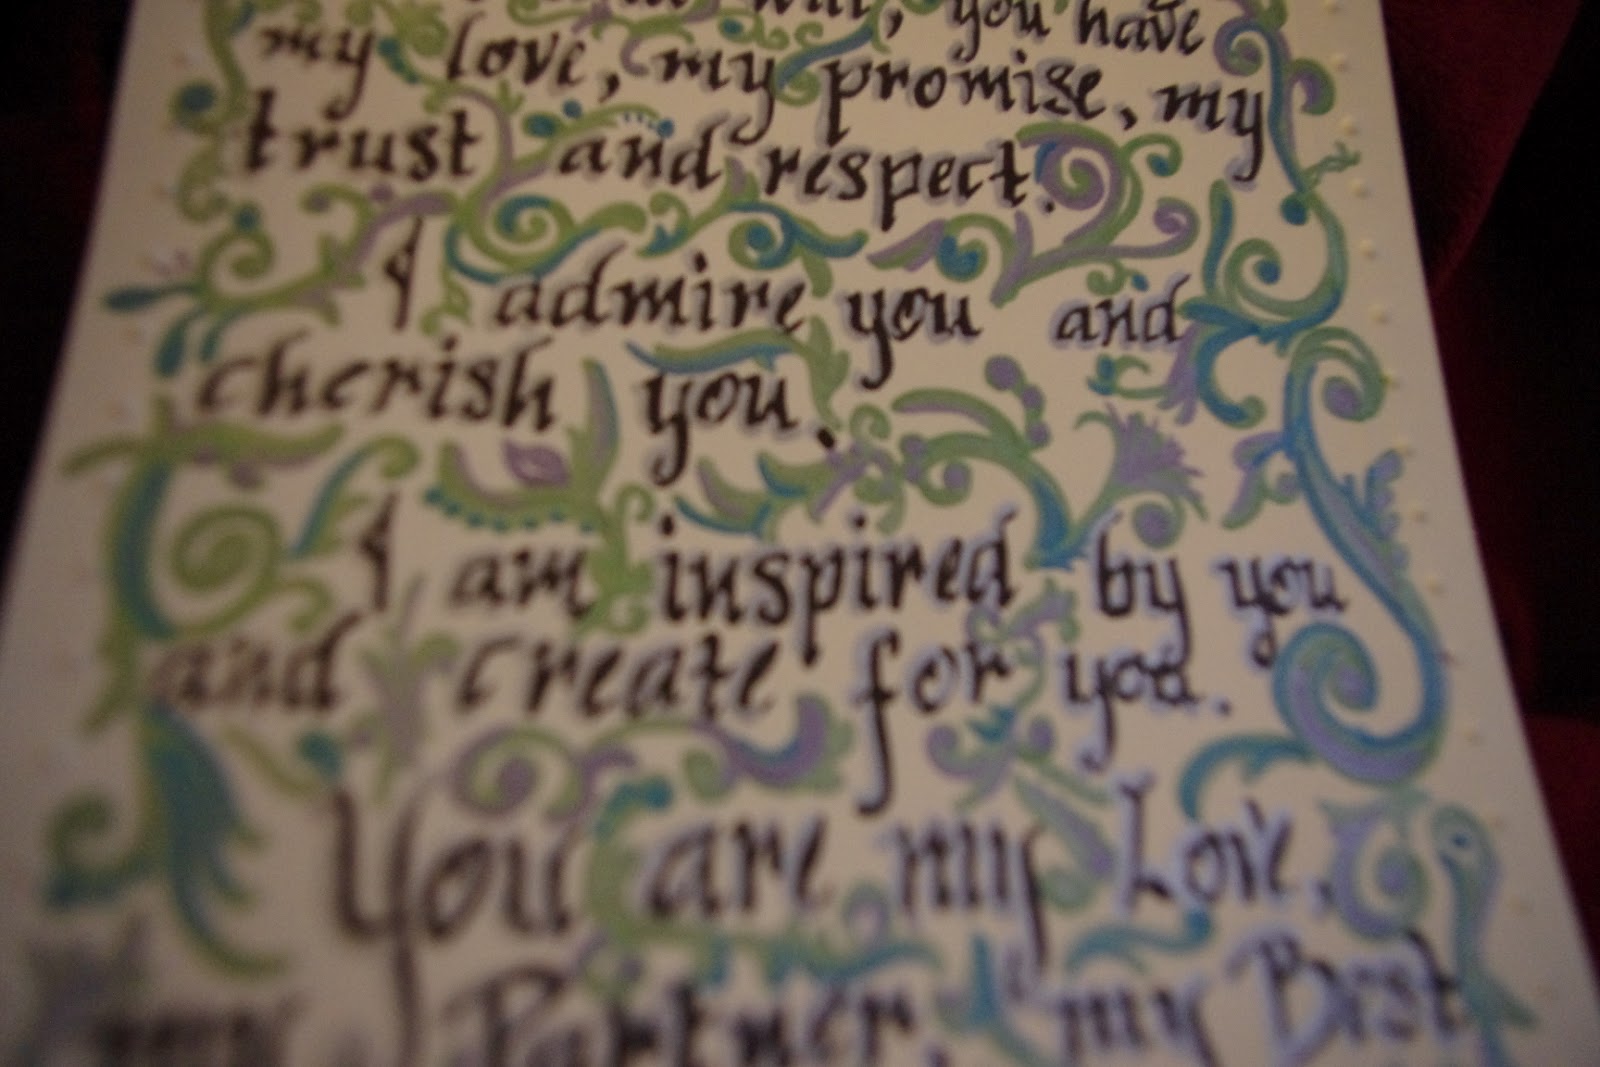 you have
my love, my promise, my
trust and respect.
I admire you and
cherish you.
I am inspired by you
and create for you.
You are my Love,
my Partner, my Best